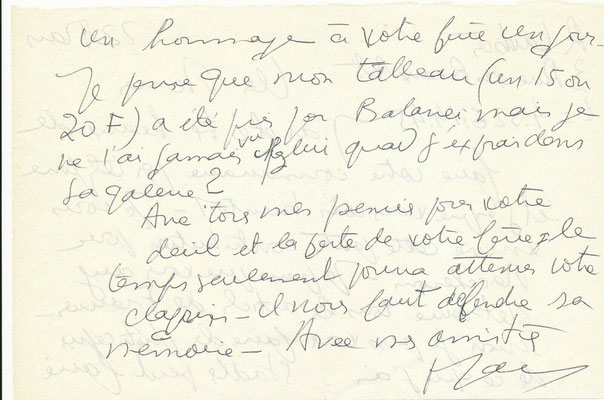 un hommage à votre père un jour -
Je pense que mon tableau (un 15 ou
20 F) a été pris par mais je
ne l'ai jamais vu chez lui quand j'exposais dans
sa galerie ?
Avec tous mes pensées pour votre
deuil et la perte de votre père le
temps seulement pourra atténuer votre
chagrin - il nous faut défendre sa
mémoire - Avec mes amitiés